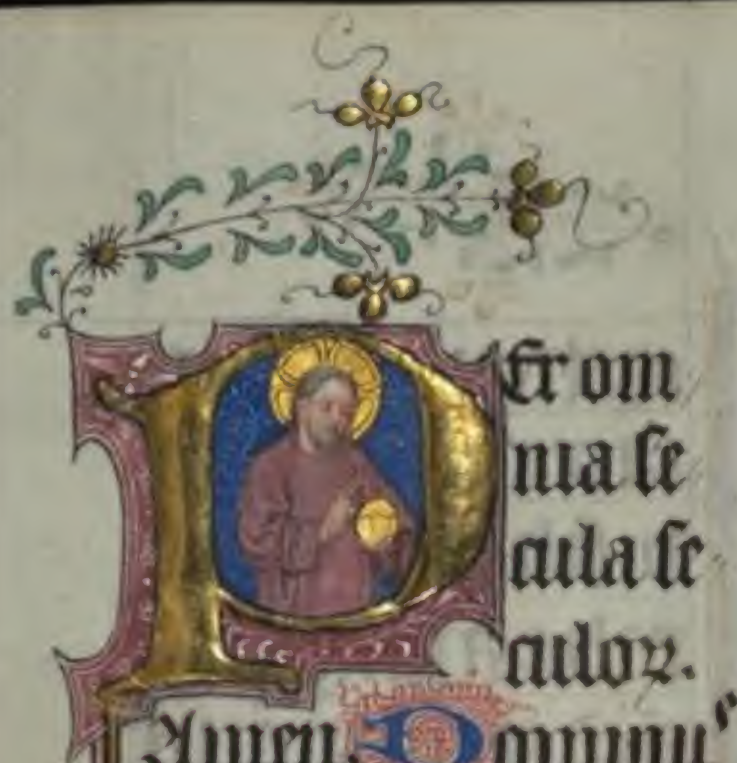 PEr om
nia ſe
cula ſe
culoꝝ.
Amen. Dominuˢ